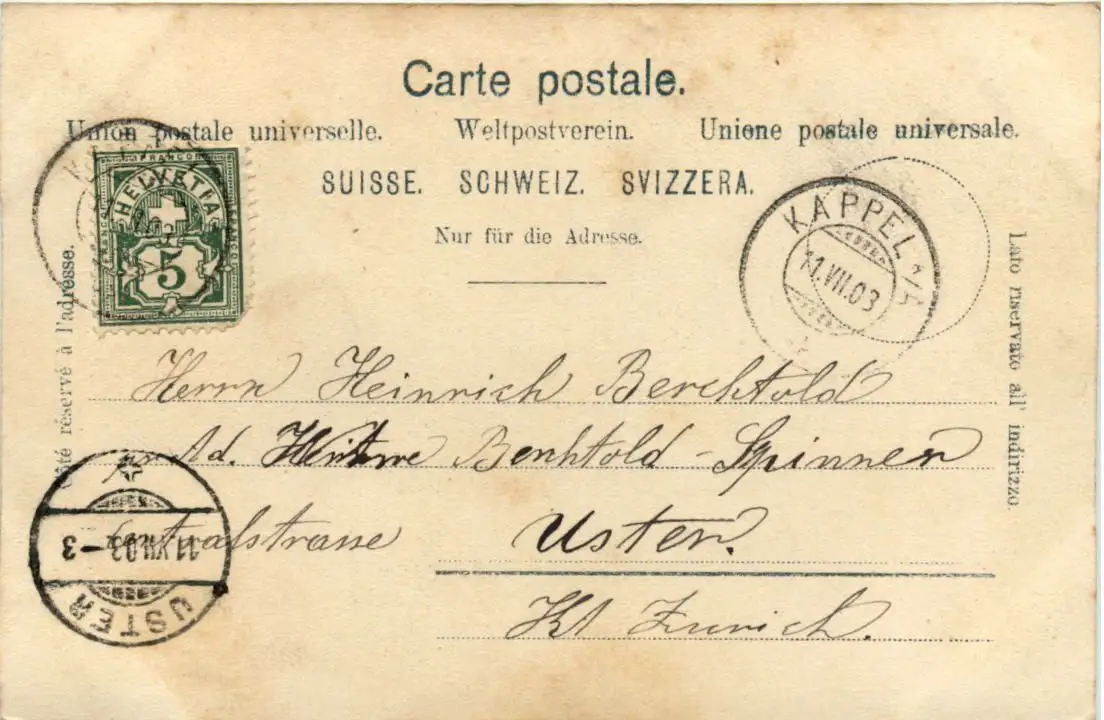 Carte postale.
Union postale universelle. Weltpostverein. Unione postale universale.
SUISSE. SCHWEIZ. SVIZZERA.
Nur für die Adresse.
FRANCO
HELVETIA
5
KAPPEL
11.VII.03
Côté réservé à l'adresse.
Lato riservato all' indirizzo.
Herrn Heinrich Berchtold
Ad. Berchtold - Spinner
Centralstrasse Uster.
Kt Zurich.
11.VII.03 - 3
USTER